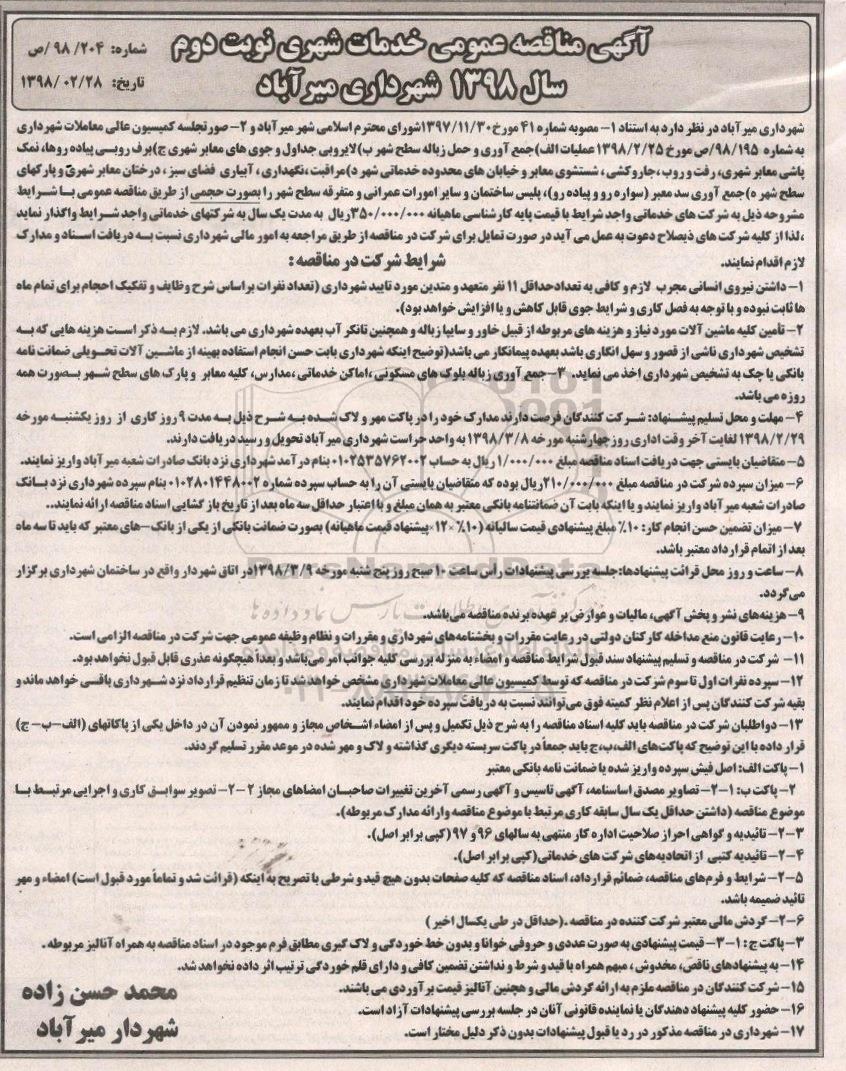 آگهی مناقصه عمومی خدمات شهری نوبت دوم
سال ۱۳۹۸ شهرداری میرآباد
شماره: ۲۰۴/ ۹۸/ص
تاریخ: ۱۳۹۸/۰۲/۲۸
شهرداری میرآباد در نظر دارد به استناد ۱- مصوبه شماره ۴۱ مورخ ۱۳۹۷/۱۱/۳۰شورای محترم اسلامی شهر میرآباد و ۲- صورتجلسه کمیسیون عالی معاملات شهرداری
به شماره ۹۸/۱۹۵/ص مورخ ۱۳۹۸/۲/۲۵ عملیات الف)جمع آوری و حمل زباله سطح شهر ب)لایروبی جداول و جوی های معابر شهری ج)برف روبـی پیاده روها، نمک
پاشی معابر شهری، رفت و روب ،جاروکشی، شستشوی معابر و خیابان های محدوده خدماتی شهر د)مراقبت،نگهداری ، آبیاری فضای سبز ، درختان معابر شهری و پارکهای
سطح شهر ه)جمع آوری سد معبر (سواره رو و پیاده رو)، پلیس ساختمان و سایر امورات عمرانی و متفرقه سطح شهر را بصورت حجمی از طریق مناقصه عمومی با شرایط
مشروحه ذیل به شرکت های خدماتی واجد شرایط با قیمت پایه کارشناسی ماهیانه ۳۵۰/۰۰۰/۰۰۰ریال به مدت یک سال به شرکتهای خدماتی واجد شرایط واگذار نماید
،لذا از کلیه شرکت های ذیصلاح دعوت به عمل می آید در صورت تمایل برای شرکت در مناقصه از طریق مراجعه به امور مالی شهرداری نسبت به دریافت اسناد و مدارک
لازم اقدام نمایند.
شرایط شرکت در مناقصه :
۱- داشتن نیروی انسانی مجرب لازم و کافی به تعدادحداقل ۱۱ نفر متعهد و متدین مورد تایید شهرداری (تعداد نفرات براساس شرح وظایف و تفکیک احجام برای تمام ماه
ها ثابت نبوده و با توجه به فصل کاری و شرایط جوی قابل کاهش و یا افزایش خواهد بود).
۲- تأمین کلیه ماشین آلات مورد نیاز و هزینه های مربوطه از قبیل خاور و سایپا زباله و همچنین تانکر آب بعهده شهرداری می باشد. لازم به ذکر است هزینه هایی که به
تشخیص شهرداری ناشی از قصور و سهل انگاری باشد بعهده پیمانکار می باشد(توضیح اینکه شهرداری بابت حسن انجام استفاده بهینه از ماشین آلات تحویلی ضمانت نامه
بانکی یا چک به تشخیص شهرداری اخذ می نماید. ۳- جمع آوری زباله بلوک های مسکونی ،اماکن خدماتی ،مدارس، کلیه معابر و پارک های سطح شهر بصورت همه
روزه می باشد.
۴- مهلت و محل تسلیم پیشنهاد: شرکت کنندگان فرصت دارند مدارک خود را در پاکت مهر و لاک شده به شرح ذیل به مدت ۹ روز کاری از روز یکشنبه مورخه
۱۳۹۸/۲/۲۹ لغایت آخر وقت اداری روز چهارشنبه مورخه ۱۳۹۸/۳/۸ به واحد حراست شهرداری میرآباد تحویل و رسید دریافت دارند.
۵- متقاضیان بایستی جهت دریافت اسناد مناقصه مبلغ ۱/۰۰۰/۰۰۰ ریال به حساب ۰۱۰۲۵۳۵۷۶۲۰۰۲بنام درآمد شهرداری نزد بانک صادرات شعبه میرآباد واریز نمایند.
۶- میزان سپرده شرکت در مناقصه مبلغ ۲۱۰/۰۰۰/۰۰۰ریال بوده که متقاضیان بایستی آن را به حساب سپرده شماره ۰۱۰۲۸۰۱۴۴۸۰۰۲بنام سپرده شهرداری نزد بانک
صادرات شعبه میر آباد واریز نمایند و یا اینکه بابت آن ضمانتنامه بانکی معتبر به همان مبلغ و با اعتبار حداقل سه ماه بعد از تاریخ باز گشایی اسناد مناقصه ارائه نمایند..
۷- میزان تضمین حسن انجام کار: ۱۰٪ مبلغ پیشنهادی قیمت سالیانه (۱۰٪×۱۲×پیشنهاد قیمت ماهیانه) بصورت ضمانت بانکی از یکی از بانک-های معتبر که باید تا سه ماه
بعد از اتمام قرارداد معتبر باشد.
۸- ساعت و روز محل قرائت پیشنهادها:جلسه بررسی پیشنهادات رأس ساعت ۱۰ صبح روز پنج شنبه مورخه ۱۳۹۸/۳/۹در اتاق شهردار واقع در ساختمان شهرداری برگزار
می گردد.
۹- هزینه‌های نشر و پخش آگهی، مالیات و عوارض بر عهده برنده مناقصه می‌باشد.
۱۰- رعایت قانون منع مداخله کارکنان دولتی در رعایت مقررات و بخشنامه‌های شهرداری و مقررات و نظام وظیفه عمومی جهت شرکت در مناقصه الزامی است.
۱۱- شرکت در مناقصه و تسلیم پیشنهاد سند قبول شرایط مناقصه و امضاء به منزله بررسی کلیه جوانب امر می‌باشد و بعدا هیچگونه عذری قابل قبول نخواهد بود.
۱۲- سپرده نفرات اول تا سوم شرکت در مناقصه که توسط کمیسیون عالی معاملات شهرداری مشخص خواهد شد تا زمان تنظیم قرارداد نزد شهرداری باقی خواهد ماند و
بقیه شرکت کنندگان پس از اعلام نظر کمیته فوق می‌توانند نسبت به دریافت سپرده خود اقدام نمایند.
۱۳- دواطلبان شرکت در مناقصه باید کلیه اسناد مناقصه را به شرح ذیل تکمیل و پس از امضاء اشخاص مجاز و ممهور نمودن آن در داخل یکی از پاکاتهای (الف-ب- ج)
قرار داده با این توضیح که پاکت‌های الف،ب،ج باید جمعاً در پاکت سربسته دیگری گذاشته و لاک و مهر شده در موعد مقرر تسلیم گردند.
۱- پاکت الف: اصل فیش سپرده واریز شده یا ضمانت نامه بانکی معتبر
۲- پاکت ب: ۱-۲- تصاویر مصدق اساسنامه، آگهی تاسیس و آگهی رسمی آخرین تغییرات صاحبان امضاهای مجاز ۲-۲- تصویر سوابق کاری و اجرایی مرتبط با
موضوع مناقصه (داشتن حداقل یک سال سابقه کاری مرتبط با موضوع مناقصه وارائه مدارک مربوطه).
۲-۳- تائیدیه و گواهی احراز صلاحیت اداره کار منتهی به سالهای ۹۶ و ۹۷ (کپی برابر اصل).
۲-۴- تائیدیه کتبی از اتحادیه‌های شرکت های خدماتی(کپی برابر اصل).
۲-۵- شرایط و فرم‌های مناقصه، ضمائم قرارداد، اسناد مناقصه که کلیه صفحات بدون هیچ قید و شرطی با تصریح به اینکه (قرائت شد و تماماً مورد قبول است) امضاء و مهر
تائید ضمیمه باشد.
۲-۶- گردش مالی معتبر شرکت کننده در مناقصه .(حداقل در طی یکسال اخیر)
۳- پاکت ج: ۱-۳- قیمت پیشنهادی به صورت عددی و حروفی خوانا و بدون خط خوردگی و لاک گیری مطابق فرم موجود در اسناد مناقصه به همراه آنالیز مربوطه .
۱۴- به پیشنهادهای ناقص، مخدوش ، مبهم همراه با قید و شرط و نداشتن تضمین کافی و دارای قلم خوردگی ترتیب اثر داده نخواهد شد.
۱۵- شرکت کنندگان در مناقصه ملزم به ارائه گردش مالی و هچنین آنالیز قیمت برآوردی می باشند.
۱۶- حضور کلیه پیشنهاد دهندگان یا نماینده قانونی آنان در جلسه بررسی پیشنهادات آزاد است.
۱۷- شهرداری در مناقصه مذکور در رد یا قبول پیشنهادات بدون ذکر دلیل مختار است.
محمد حسن زاده
شهردار میرآباد